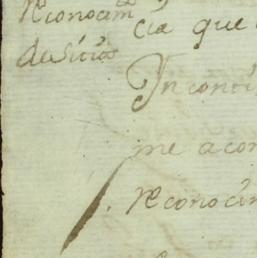 Reconocim
cia que
de Sitios
In conti
me acom
Reconocim